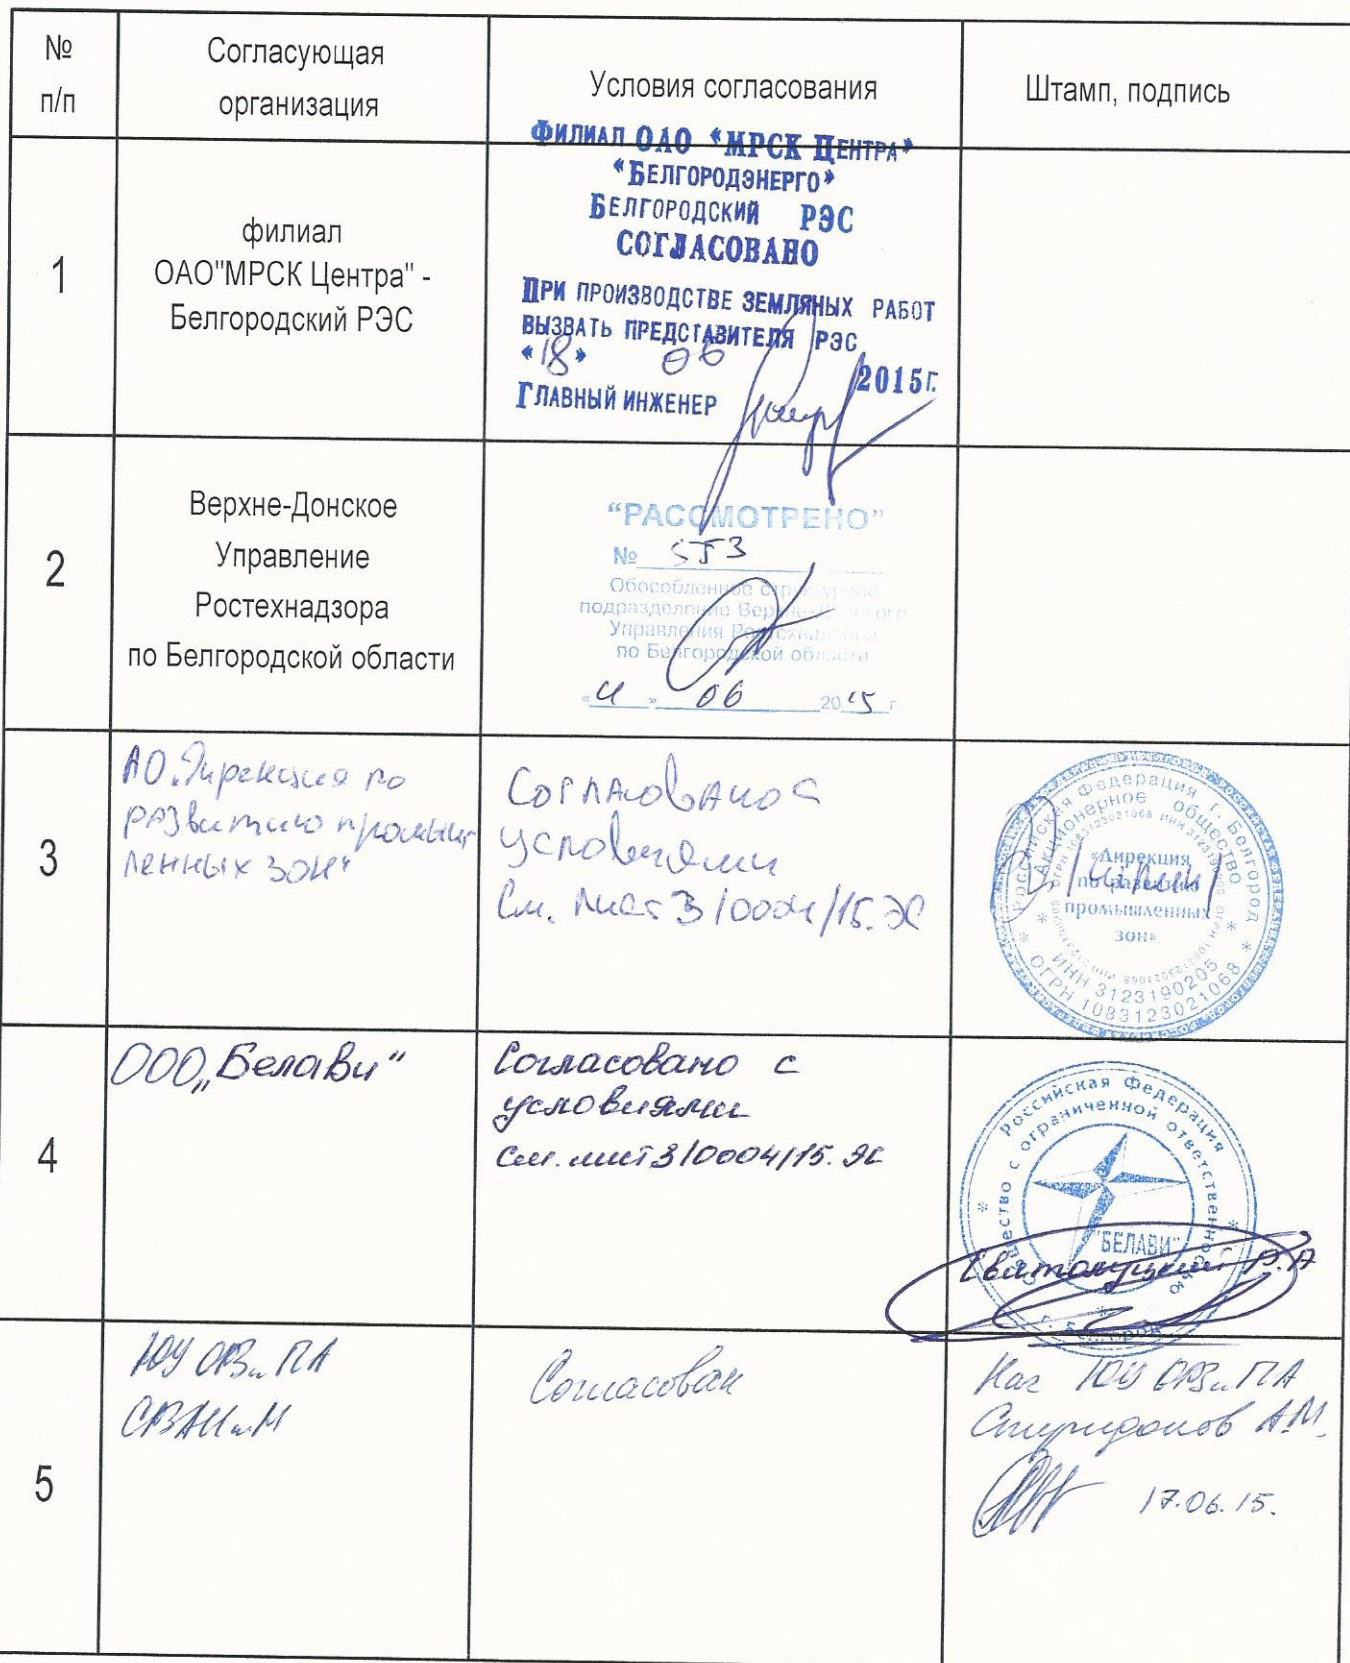 №
п/п
Согласующая
организация
Условия согласования
Штамп, подпись
1
филиал
ОАО"МРСК Центра" -
Белгородский РЭС
ФИЛИАЛ ОАО "МРСК ЦЕНТРА"
"БЕЛГОРОДЭНЕРГО"
БЕЛГОРОДСКИЙ РЭС
СОГЛАСОВАНО
ПРИ ПРОИЗВОДСТВЕ ЗЕМЛЯНЫХ РАБОТ
ВЫЗВАТЬ ПРЕДСТАВИТЕЛЯ РЭС
"18" 06 2015г.
ГЛАВНЫЙ ИНЖЕНЕР
2
Верхне-Донское
Управление
Ростехнадзора
по Белгородской области
"РАССМОТРЕНО"
№
Обособленное структурное
подразделение Верхне-Донского
Управления Ростехнадзора
по Белгородской области
06 2015 г.
3
АО "Дирекция по
развитию промыш-
ленных зон"
Согласовано с
условиями
См. лист 3/0004/15.ЭС
Российская Федерация г. Белгород
Акционерное общество
ОГРН 1083123021068 ИНН 3123190205
«Дирекция
по развитию
промышленных
зон»
ИНН 3123190205
ОГРН 1083123021068
4
ООО „Белави"
Согласовано с
условиями
См. лист 3/0004/15. ЭС
Российская Федерация
Общество с ограниченной ответственностью
"БЕЛАВИ"
г. Белгород
5
ЮУ ОРЗиПА
СРЗАИиМ
Согласован
Нач ЮУ ОРЗиПА
Спиридонов А.М.
17.06.15.